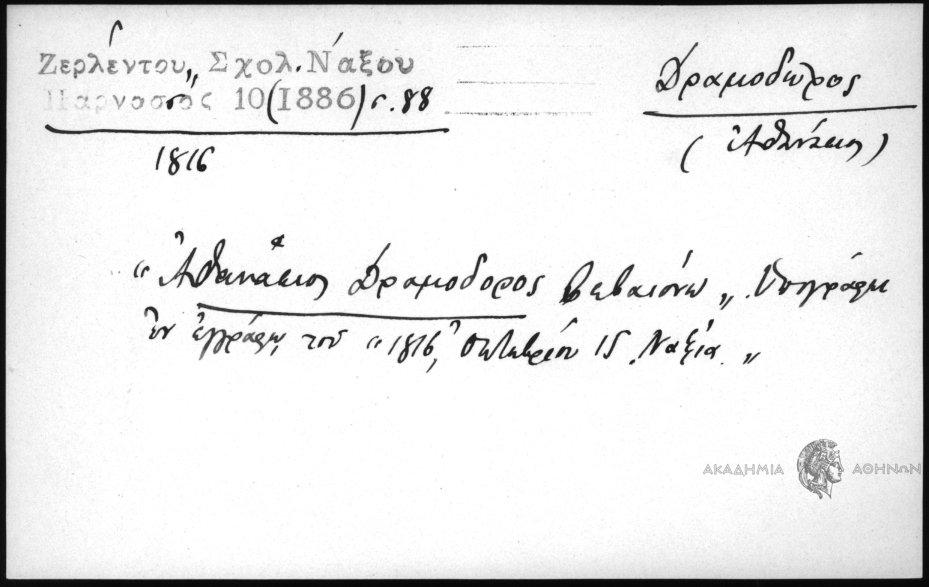 Ζερλέντου, Σχολ. Νάξου
Παρνασσός 10 (1886) σ. 88
1816
Δραμοδῶρος
(Ἀθανάσιος)
"Ἀθανάσιος Δραμοδορος βεβαιόνω" Ὑπογράφει
ἐν ἐγγράφῳ τοῦ "1816, ὀκτωβρίου 15. Ναξία."
ΑΚΑΔΗΜΙΑ ΑΘΗΝΩΝ